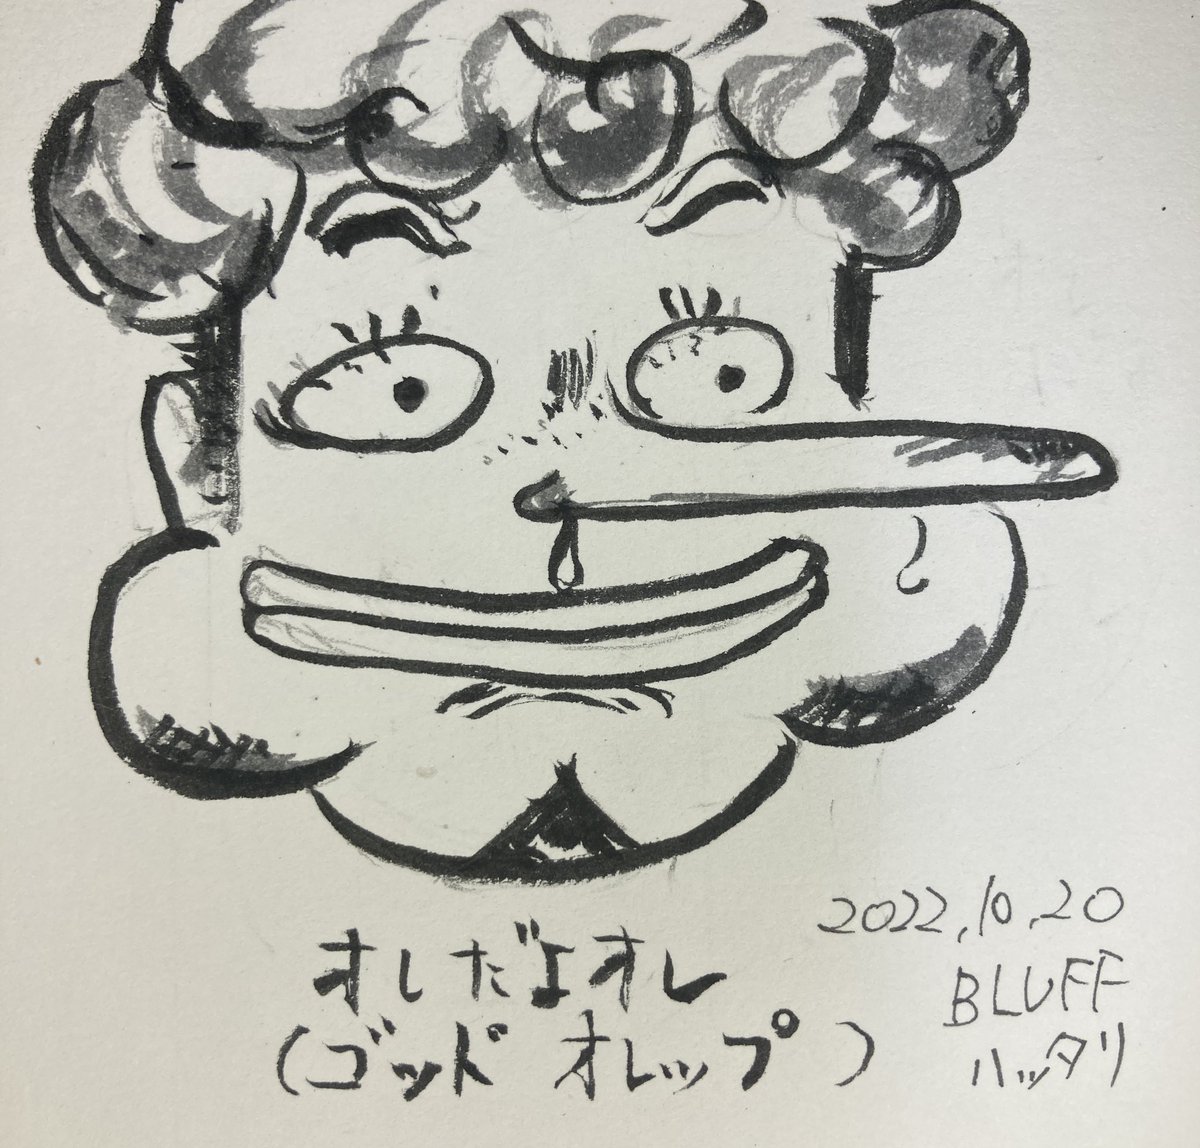 オレだよオレ
(ゴッド オレップ)
2022.10.20
BLUFF
ハッタリ